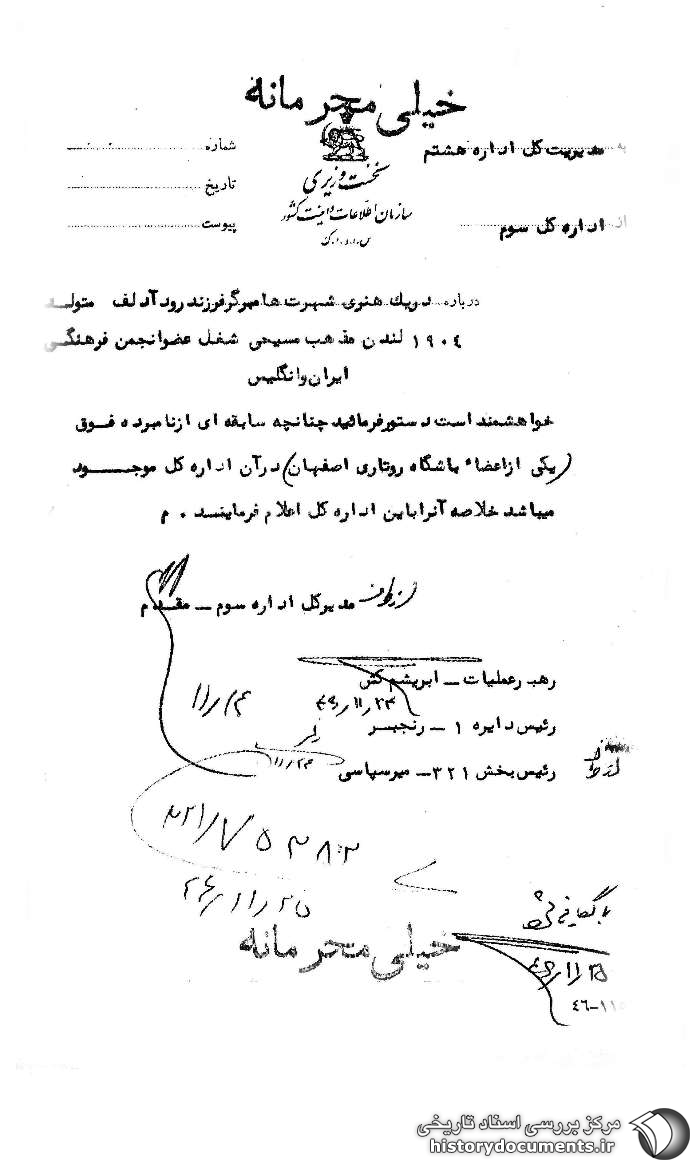 خیلی محرمانه
به مدیریت کل اداره هشتم
نخست وزیری
شماره
سازمان اطلاعات و امنیت کشور
تاریخ
س.ا.و.ا.ک
از اداره کل سوم
پیوست
درباره دویك هنری شهرت هامبرگر فرزند رود آدلف متولد
۱۹۰۴ لندن مذهب مسیحی شغل عضو انجمن فرهنگی
ایران وانگلیس
خواهشمند است دستور فرمائید چنانچه سابقه ای از نامبرده فوق
(یکی از اعضاء باشگاه روتاری اصفهان) در آن اداره کل موجود
میباشد خلاصه آنرا باین اداره کل اعلام فرمایند . م
مدیر کل اداره سوم ــ مقدم
از طرف
رهبر عملیات ــ ابریشم کش
۴۶/۱۱/۲۳
۱۱/۲۴
رئیس دایره ۱ ــ رنجبر
رئیس بخش ۳۲۱ ــ میرسپاسی
۱۱/۲۳
از طرف
۳۲۱/۷۵۳۸۲
۴۶/۱۱/۲۵
بایگانی شود
خیلی محرمانه
۴۶/۱۱/۲۵
مرکز بررسی اسناد تاریخی
historydocuments.ir